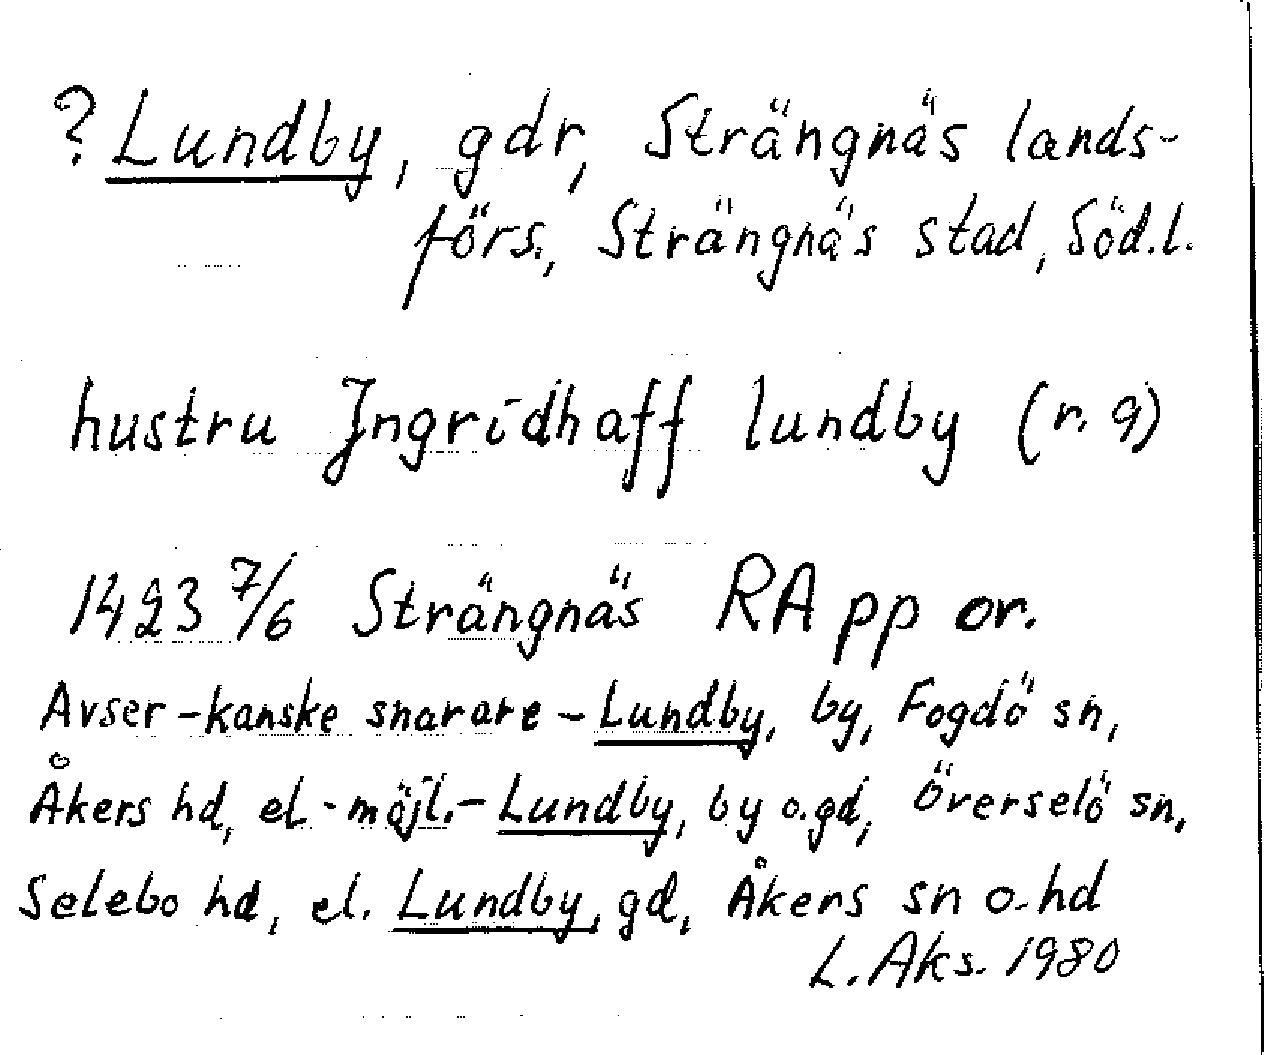 ? Lundby, gdr, Strängnäs lands-
förs., Strängnäs stad, Söd.l.
hustru Jngridh aff lundby (r. 9)
1423 7/6 Strängnäs RA pp or.
Avser - kanske snarare - Lundby, by, Fogdö sn,
Åkers hd, el - möjl. - Lundby, by o. gd, Överselö sn,
Selebo hd, el. Lundby, gd, Åkers sn o. hd
L. Aks. 1980